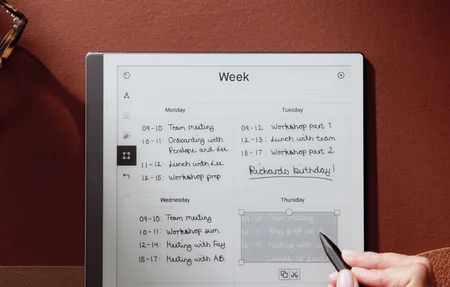 Week
Monday
09-10: Team meeting
10-11: Onboarding with
Penelope and Lee
11-12: Lunch with Lee
12-15: Workshop prep
Tuesday
09-12: Workshop part 1
12-13: Lunch with team
13-17: Workshop part 2
Richards birthday!
Wednesday
09-10: Team meeting
10-11: Workshop sum.
12-14: Meeting with Fay
15-17: Meeting with A.B.
Thursday
09-10: Team meeting
10-11: draft for
Meeting with